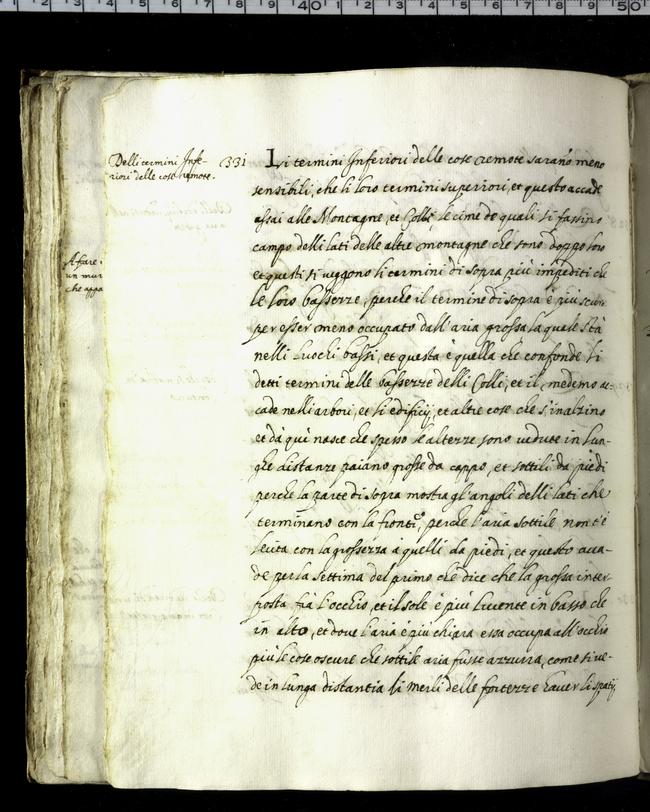 Delli termini Infe-
riori delle cose remote.
331
A fare i
un mur
che appa
Li termini Inferiori delle cose remote saran̄o meno
sensibili, che li loro termini superiori, et questo accade
assai alle Montagne, et Colli, le cime de quali si fassino
campo delli lati delle altre montagne che sono doppo loro
et questi si veggono li termini di sopra più impediti che
le loro bassezze, perche il termine di sopra è più scuro
per esser meno occupato dall'aria grossa la quale stà
nelli luochi bassi, et questa è quella che confonde li
detti termini delle bassezze delli Colli, et il medemo ac-
cade nelli arbori, et li edificij, et altre cose che s'inalzino
et dà quì nasce che spesso le altezze sono vedute in lun-
ghe distanze paiano grosse da cappo, et sottili da piedi
perche la parte di sopra mostra gl'angoli delli lati che
terminano con la fronte, perche l'aria sottile non t'è
levita con la grossezza à quelli da piedi, et questo acca-
de per la settima del primo che dice che la grossa inter-
posta frà l'occhio, et il sole è più lucente in basso che
in alto, et dove l'aria è più chiara essa occupa all'occhio
più le cose oscure che sottile aria fusse azzurra, come si ve-
de in lunga distantia li merli delle fortezze haver li spatij